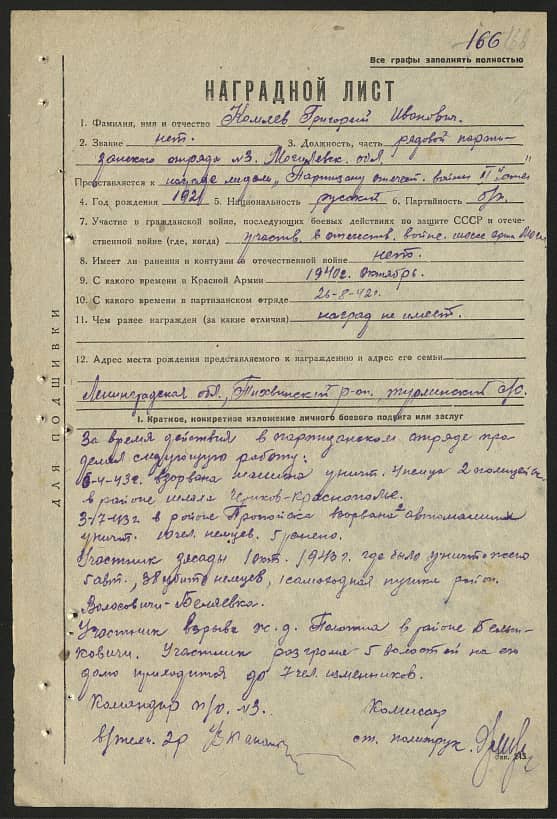 166
Все графы заполнять полностью
НАГРАДНОЙ ЛИСТ
1. Фамилия, имя и отчество Комлев Григорий Иванович.
2. Звание нет. 3. Должность, часть рядовой парти-
занского отряда №3. Могилевск. обл.
Представляется к награде медаль „Партизану отечест. войны II степ"
4. Год рождения 1921 5. Национальность русский 6. Партийность б/п.
7. Участие в гражданской войне, последующих боевых действиях по защите СССР и отече-
ственной войне (где, когда) участив. в отечеств. войне.
8. Имеет ли ранения и контузии в отечественной войне нет.
9. С какого времени в Красной Армии 1940г. Октябрь.
10. С какого времени в партизанском отряде 26-8-42г.
11. Чем ранее награжден (за какие отличия) наград не имеет.
12. Адрес места рождения представляемого к награждению и адрес его семьи
Ленинградская обл., Тихвинский р-он, с/с.
I. Краткое, конкретное изложение личного боевого подвига или заслуг
За время действия в партизанском отряде про
делал следующую работу:
6-4-43г. взорвана машина уничт. 4 немца 2 полицейск.
в районе шляха Чериков-Краснополье.
3-17-43г в районе Пропойска взорвана 2 автомашины
уничт. 10 чел. немцев. 5 ранено.
Участник засады 1 окт. 1943г. где было уничтожено
5 авт., 38 убито немцев, 1 самоходная пушка район.
Волосовичи-Беляевка.
Участник взрыва ж.д. Полотна в районе Бельн-
ковичи. Участник разгрома 5 волостей на его
долю приходится до 7 чел. изменников.
Командир п/о. №3. Комиссар
в/техн. 2р ст. политрук.
Зак. 213
ДЛЯ ПОДШИВКИ